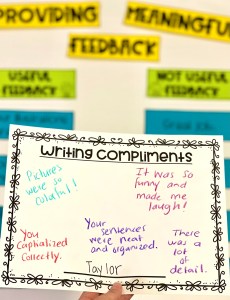 PROVIDING MEANINGFUL
FEEDBACK
USEFUL
FEEDBACK
NOT USEFUL
FEEDBACK
Writing Compliments
Pictures
were so
colorful!
It was so
funny and
made me
laugh!
You
Capitalized
Correctly.
Your
sentences
were neat
and organized.
There
was a
lot
of
detail.
Taylor